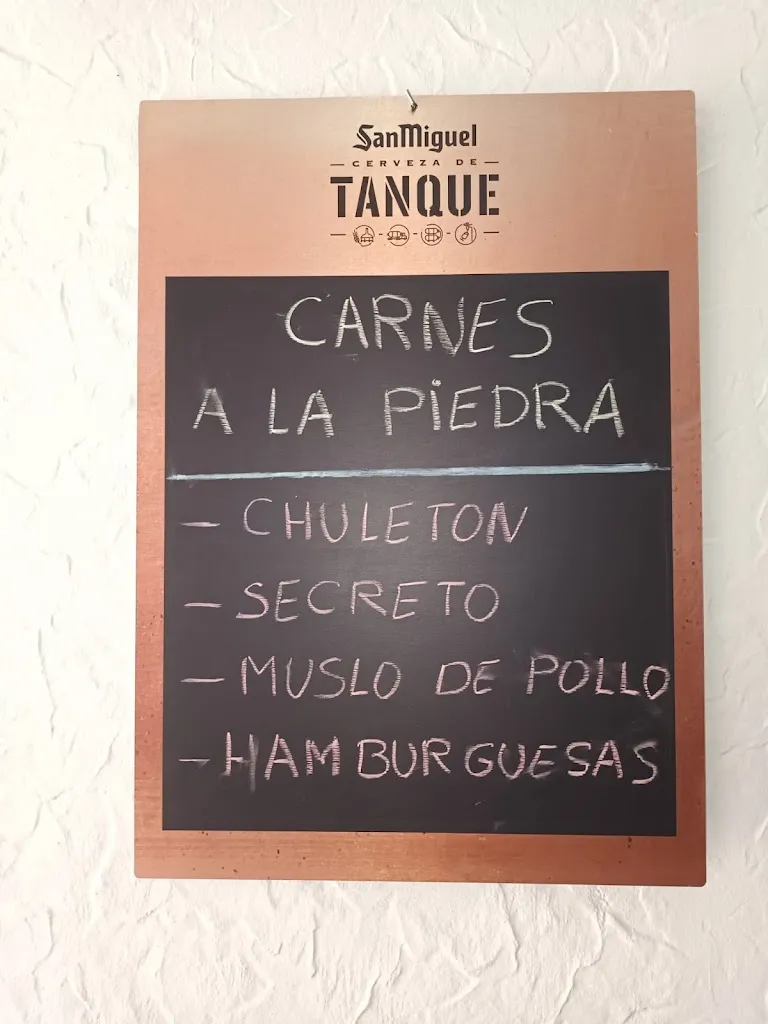 SanMiguel
CERVEZA DE
TANQUE
CARNES
A LA PIEDRA
- CHULETON
- SECRETO
- MUSLO DE POLLO
- HAMBURGUESAS